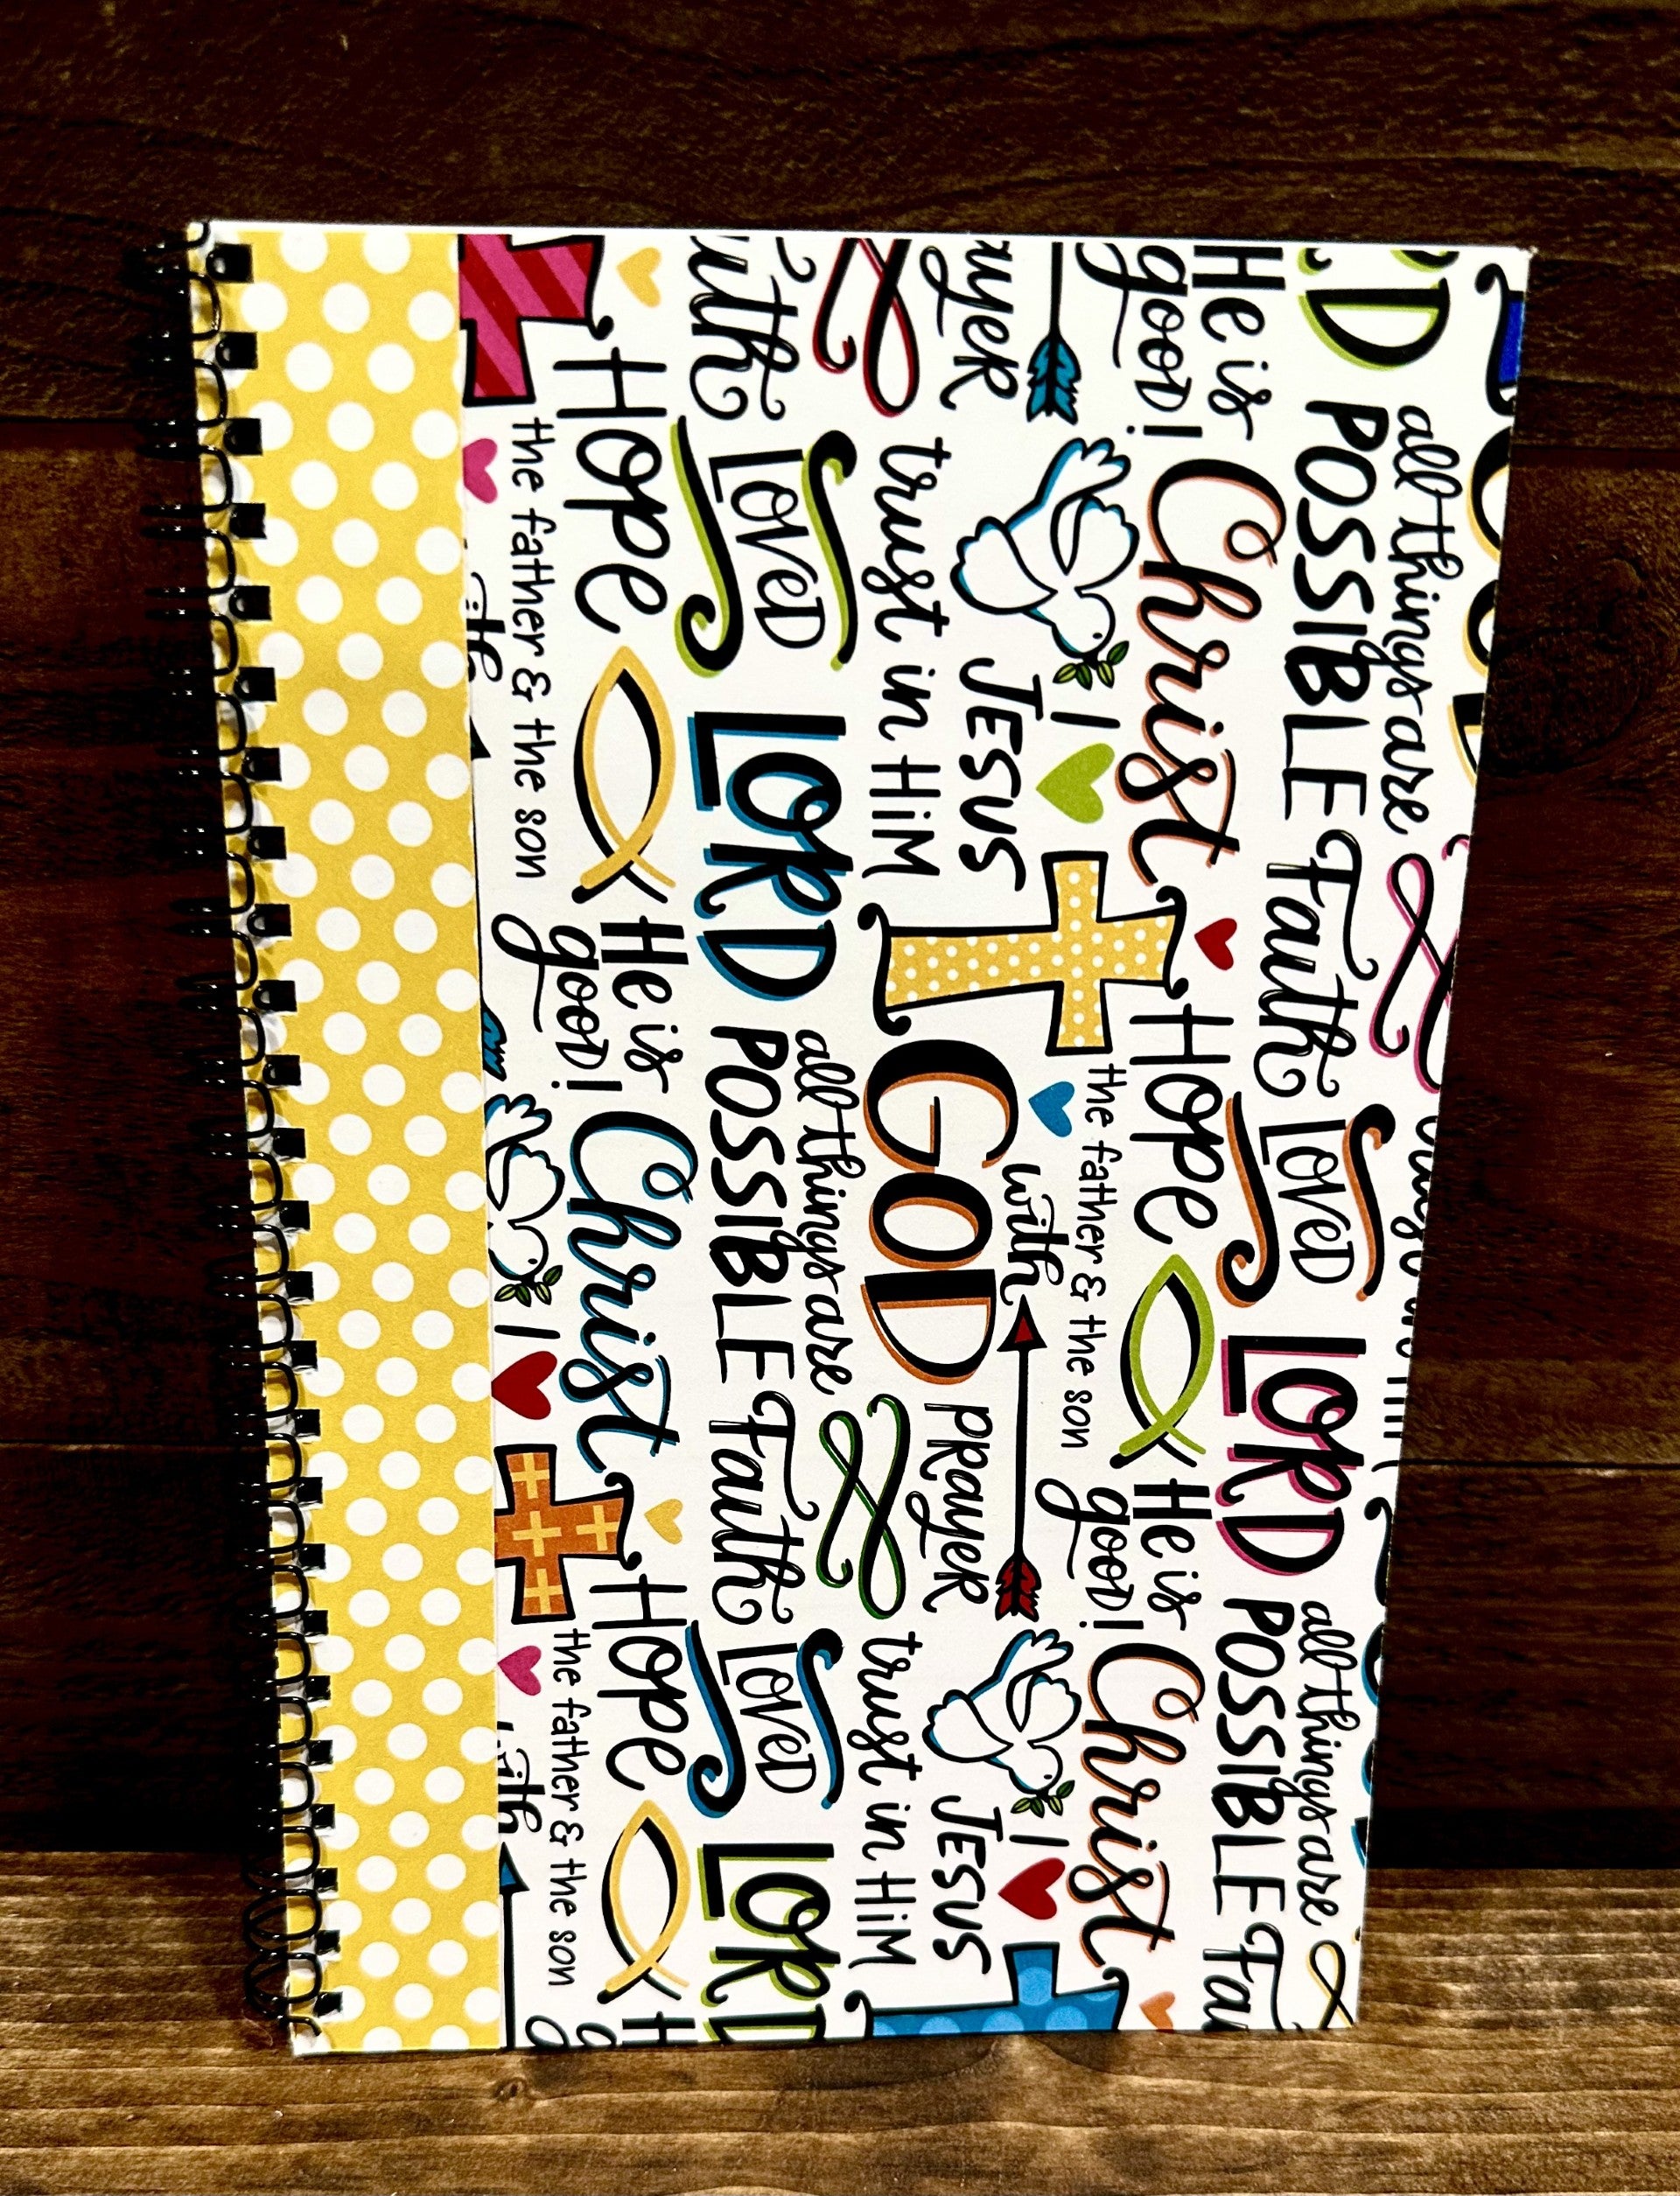 all things are
POSSIBLE Faith LOVED
all things are
LORD POSSIBLE
He is
good!
Christ
Hope
the father & the son
He is
good!
Christ
I
JESUS
with
trust in HiM
GOD
PRAYER
I
JESUS
trust in HiM
LOVED
LORD
all things are
POSSIBLE Faith LOVED
LORD
Hope
the father & the son
He is
good!
Christ
I
Hope
the father & the son
with